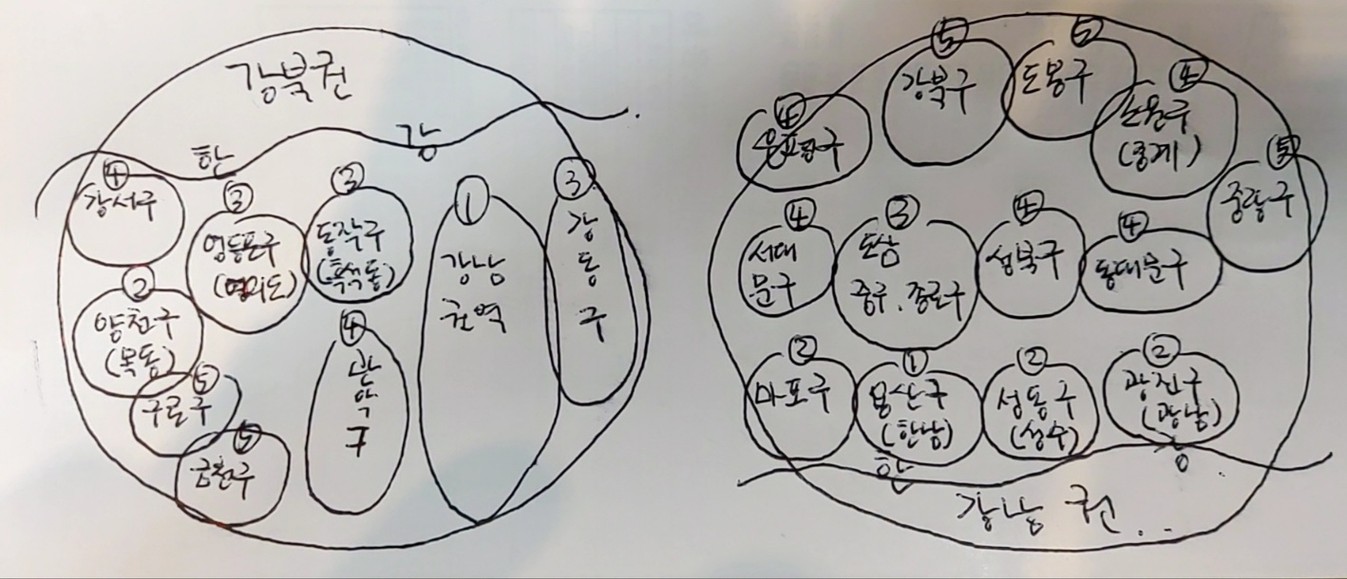 강북권
한 강
④
강서구
③
영등포구
(여의도)
③
동작구
(흑석동)
①
강남
권역
③
강
동
구
②
양천구
(목동)
⑤
구로구
⑤
금천구
④
관
악
구
④
은평구
⑤
강북구
⑤
도봉구
④
노원구
(중계)
⑤
중랑구
④
서대
문구
③
도심
중구, 종로구
④
성북구
④
동대문구
②
마포구
①
용산구
(한남)
②
성동구
(성수)
②
광진구
(광남)
한 강
강남권